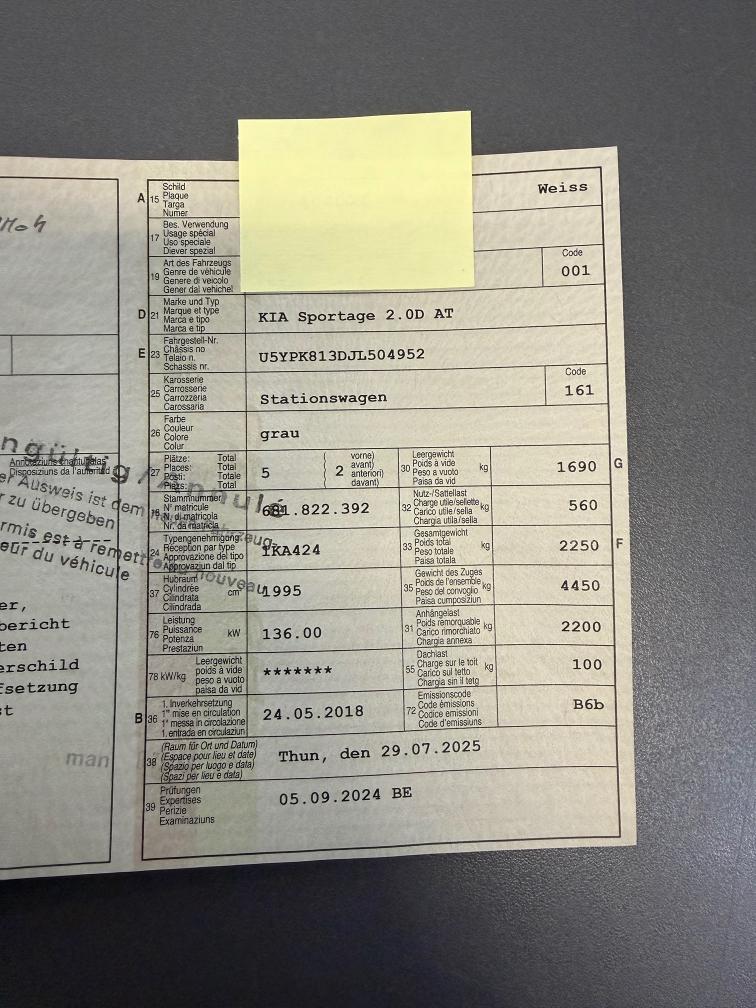 A 15 Schild
Plaque
Targa
Numer
Weiss
17 Bes. Verwendung
Usage spécial
Uso speciale
Diever spezial
19 Art des Fahrzeugs
Genre de véhicule
Genere di veicolo
Gener dal vehichel
Code
001
D 21 Marke und Typ
Marque et type
Marca e tipo
Marca e tip
KIA Sportage 2.0D AT
E 23 Fahrgestell-Nr.
Châssis no
Telaio n.
Schassis nr.
U5YPK813DJL504952
25 Karosserie
Carrosserie
Carrozzeria
Carossaria
Stationswagen
Code
161
26 Farbe
Couleur
Colore
Colur
grau
27 Plätze: Total
Places: Total
Posti: Totale
Plazs: Total
5
2 vorne)
avant)
anteriori)
davant)
30 Leergewicht
Poids à vide
Peso a vuoto
Paisa da vid
kg
1690 G
18 Stammnummer
N° matricule
N. di matricola
Nr. da matricla
681.822.392
32 Nutz-/Sattellast
Charge utile/sellette
Carico utile/sella
Chargia utila/sella
kg
560
24 Typengenehmigung
Réception par type
Approvazione del tipo
Approvaziun dal tip
1KA424
33 Gesamtgewicht
Poids total
Peso totale
Paisa totala
kg
2250 F
37 Hubraum
Cylindrée
Cilindrata
Cilindrada
cm³
1995
35 Gewicht des Zuges
Poids de l'ensemble
Peso del convoglio
Paisa cumposiziun
kg
4450
76 Leistung
Puissance
Potenza
Prestaziun
kW
136.00
31 Anhängelast
Poids remorquable
Carico rimorchiato
Chargia annexa
kg
2200
78 kW/kg Leergewicht
poids à vide
peso a vuoto
paisa da vid
*******
55 Dachlast
Charge sur le toit
Carico sul tetto
Chargia sin il tetg
kg
100
B 36 1. Inverkehrsetzung
1re mise en circulation
1a messa in circolazione
1. entrada en circulaziun
24.05.2018
72 Emissionscode
Code émissions
Codice emissioni
Code d'emissiuns
B6b
38 (Raum für Ort und Datum)
(Espace pour lieu et date)
(Spazio per luogo e data)
(Spazi per lieu e data)
Thun, den 29.07.2025
39 Prüfungen
Expertises
Perizie
Examinaziuns
05.09.2024 BE
ngültig / Annulé
er Ausweis ist dem
r zu übergeben
rmis est à remettre
eur du véhicule
nouveau
Disposiziuns da l'autoritad
er,
bericht
ten
erschild
fsetzung
t
man